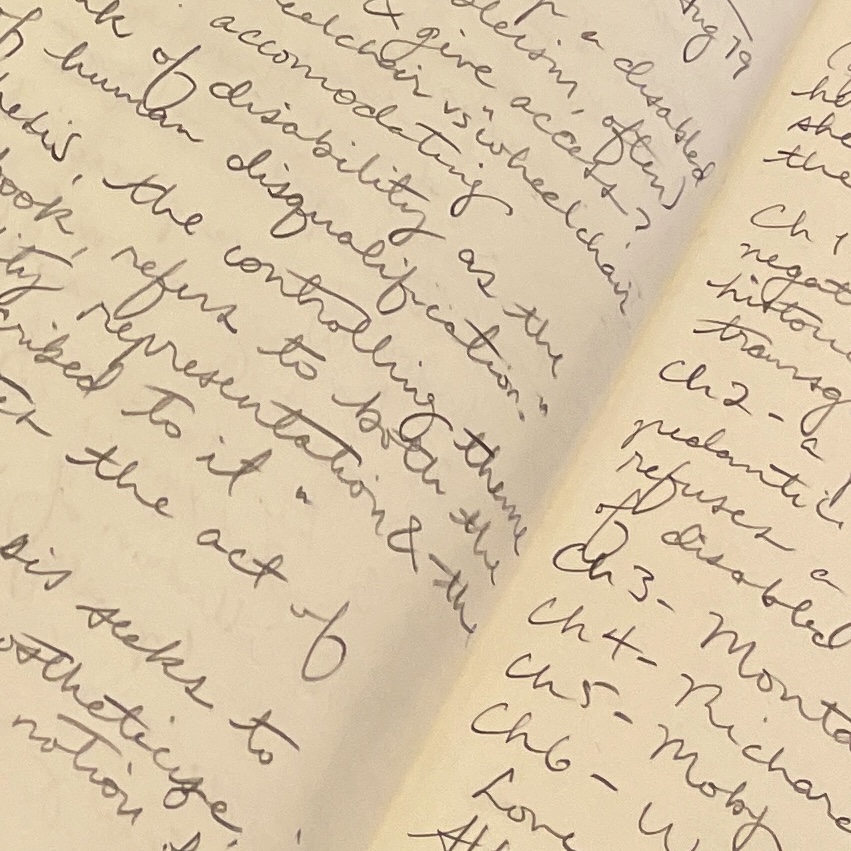 Aug 19
a disabled
ableism, often)
& give access?
wheelchair vs "wheelchair
accomodating
of disability as the
of human disqualification."
the controlling theme
book, refers to both the
representation & the
cribed to it"
the act of
sis seeks to
ostheticize
notion
the
Ch 1
negat
histori
transg
Ch 2 - a
pedantic,
refuses a
of disabled
Ch 3 - Monta
Ch 4 - Richard
Ch 5 - Moby
Ch 6 - W
Love